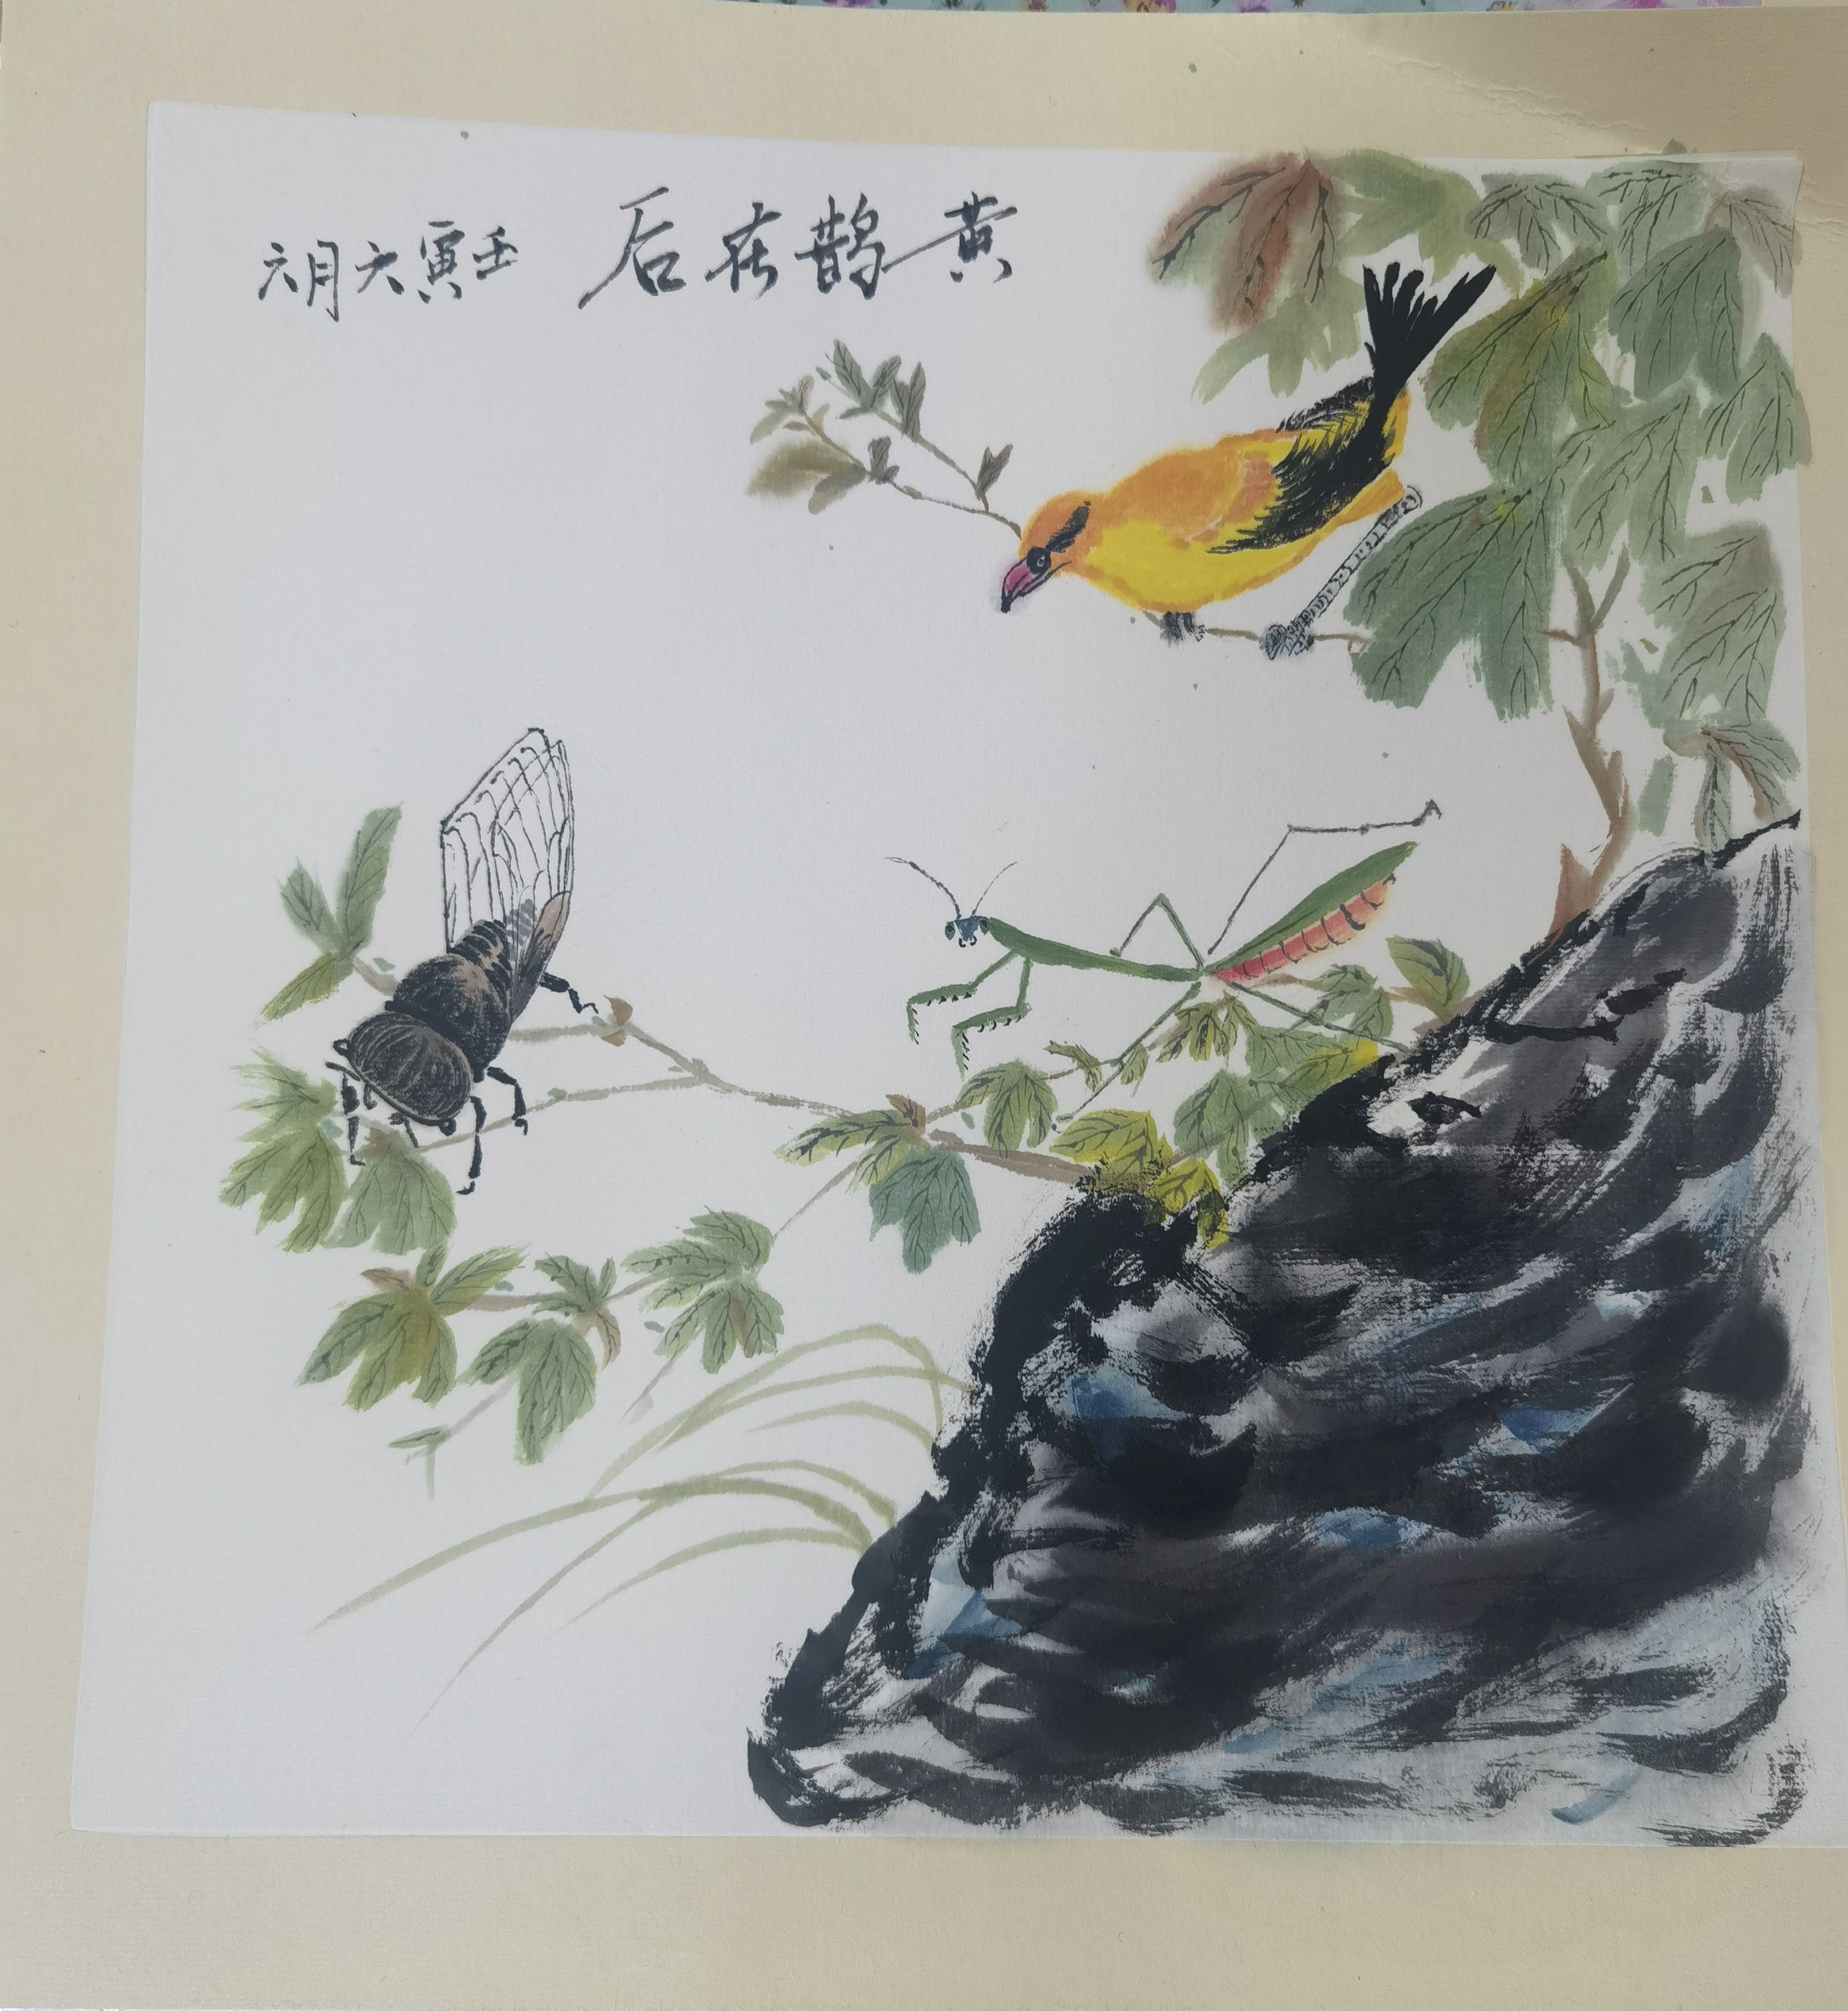 黄鹊在后 壬寅六月六